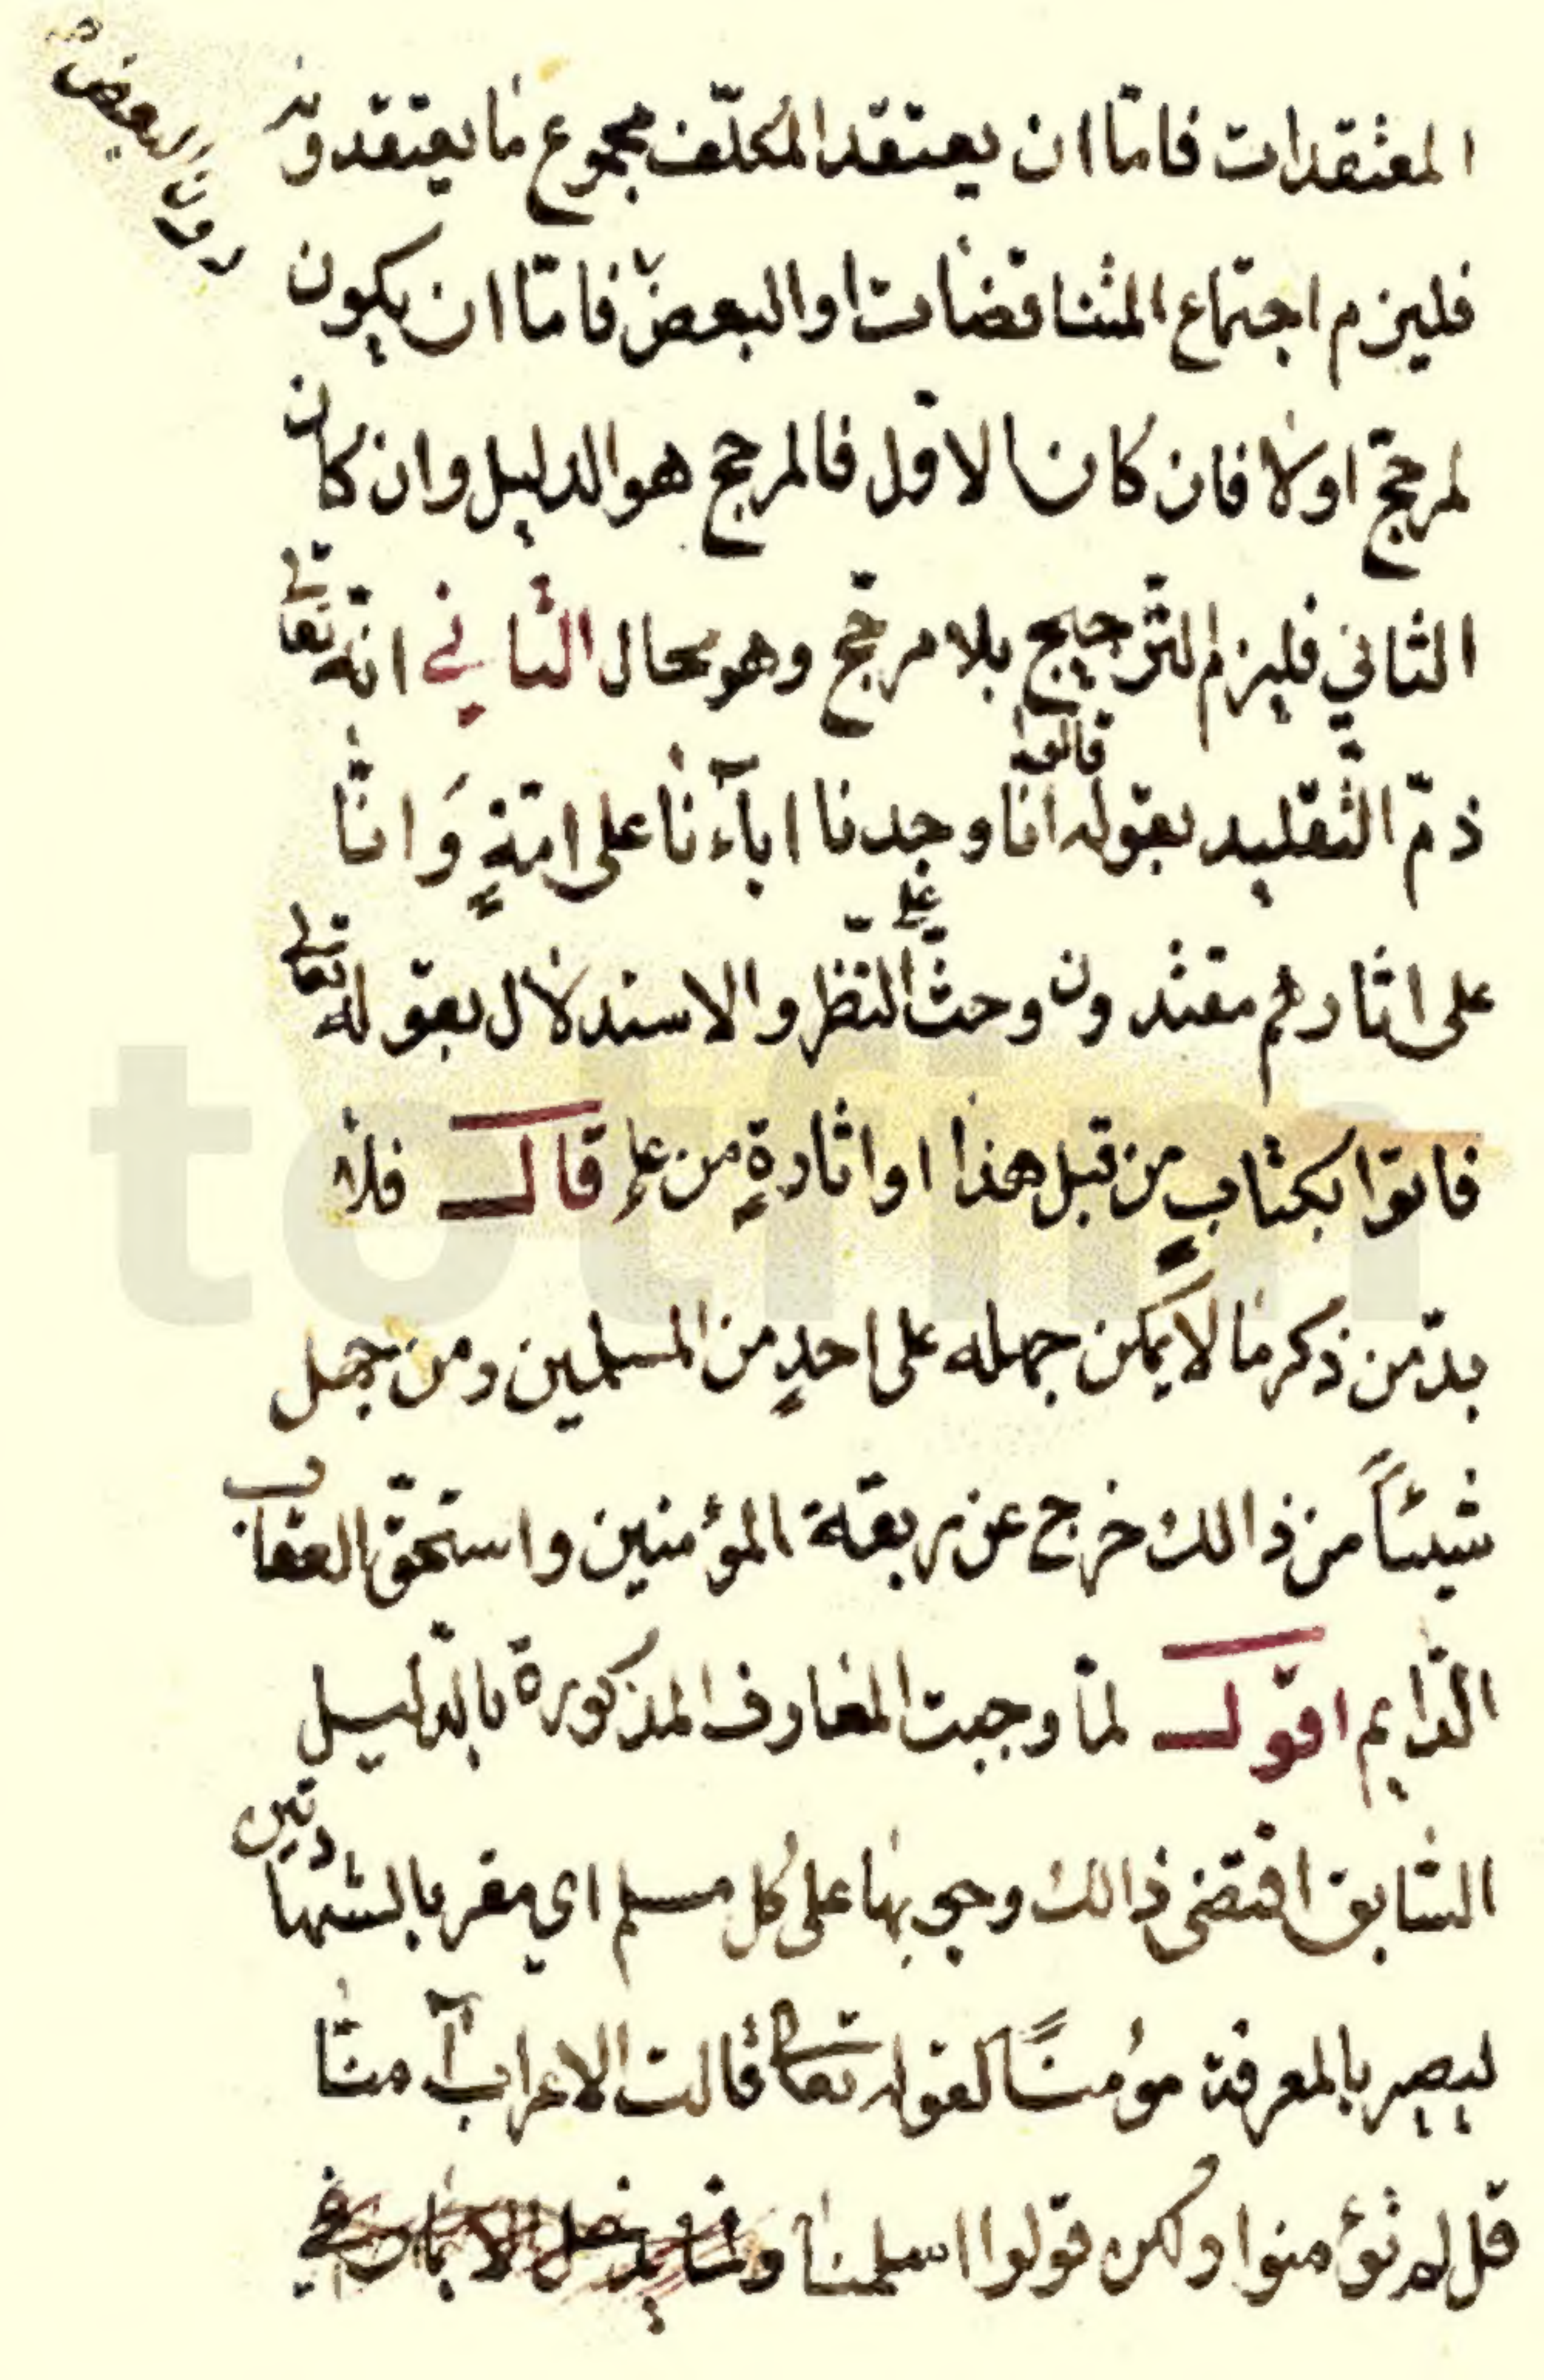 المعتقدات فامّا ان يعتقد المكلّف مجموع ما يعتقدونه
فليزم اجتماع المتناقضات او البعض فامّا ان يكون
دون البعض صح
لمرجّح اولا فان كان الاوّل فالمرجح هو الدليل وان كان
الثاني فليزم التّرجيح بلا مرجّح وهو محال الثاني انّه تعالى
ذمّ التّقليد بقوله قالوا انّا وجدنا اباۤءنا على امّةٍ وَانّا
على اثارهم مقتدون وحثّ على النّظر والاستدلال بقوله تعالى
فاتوا بكتابٍ من قبل هذا او اثارةٍ من علم قال فلا
بدّ من ذكر ما لا يمكن جهله على احدٍ من المسلمين ومن جهل
شيئاً من ذالك خرج عن ربقة المؤمنين واستحقّ العقاب
الدّايم اقول لمّا وجبت المعارف المذكورة بالدّليل
السّابق اقتضى ذالك وجوبها على كل مسلم اي مقر بالشهادتين
ليصير بالمعرفة مؤمنًا لقوله تعالى قالت الاعراب آمنّا
قل لم تؤمنوا ولكن قولوا اسلمنا ولمّا يدخل الايمان في
totfim